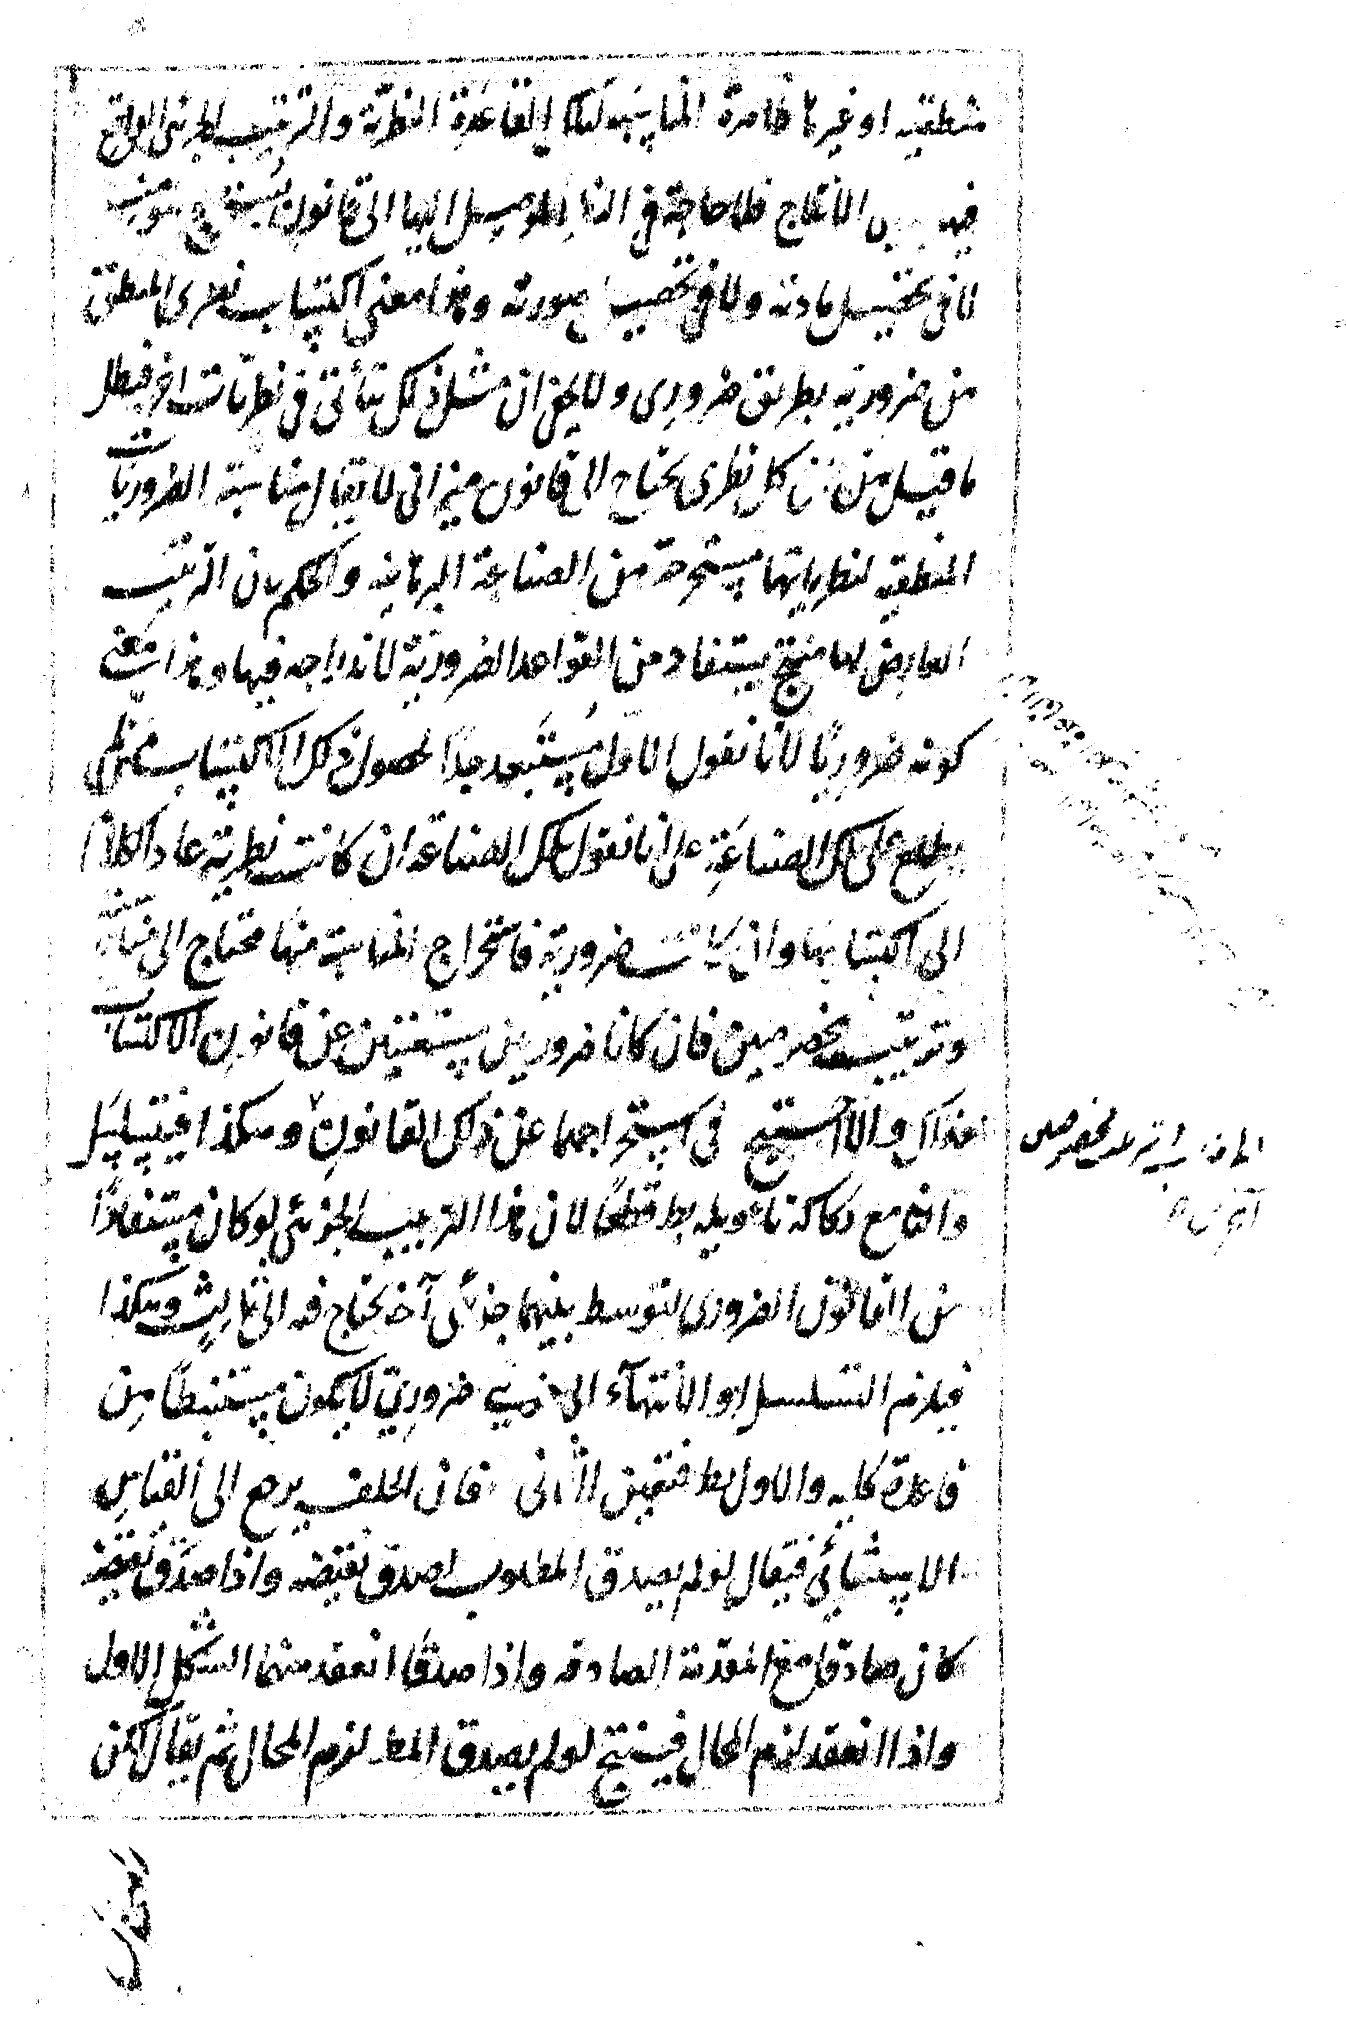 منطقية او غيرها ظاهرة المناسبة لتلك القاعدة النظرية والترتيب الجزئي الواقع
فيه بين الانتاج فلا حاجة في التأدى الموصل اليها الى قانون يستخرج بمونته
لا في تحصيل مادته ولا في تحصيل صورته وهذا معنى اكتساب نظرى المنطق
من ضروريه بطريق ضرورى ولا يخفى ان مثل ذلك يتأتى في نظريات اخر فبطل
ما قيل من ان كل نظرى يحتاج الى قانون ميزانى لا يقال مناسبة الضروريات
المنطقيه لنظرياتها مستخرجة من الصناعة البرهانيه والحكم بان الترتيب
العارض لها منتج يستفاد من القواعد الضروريّة لاندراجه فيها وهذا معنى
كونه ضروريّا لانا نقول الاوّل مُستَبعد جدّا لحصول ذلك الاكتساب ممن لم
يطلع على تلك الصناعَة على انا نقول تلك الصناعة ان كانت نظريّة عاد الكلام
الى اكتسابها وان كانت ضرورية فاستخراج المناسبة منها محتاج الى مناسبة
وترتيب مخصوصين فان كانا ضروريين مستغنيين عن قانون الاكتساب
فذاك والا احتيج في استخراجهما عن ذلك القانون وهكذا فيتسلسل
والثانى مع ركاكة تاءويله بط قطعًا لان هذا الترتيب الجزئي لو كان مستفادًا
من القانون الضرورى لتوسط بينهما جزئى آخر يحتاج فيه الى ثالث وهكذا
فيلزم التسلسل او الانتهآء الى ضروريّ لا يكون مستنبطًا من
قاعدة كليه والاول بط فتعين الثانى فان الخلف يرجع الى القياس
الاستثنائي فيقال لو لم يصدق المطلوب لصدق نقيضه واذا صدق نقيضه
كان صادقا مع المقدمة الصادقه واذا صدقا انعقد منهما الشكل الاول
واذا انعقد لزم المحال فينتج لو لم يصدق المط لزم المحال ثم يقال لكن